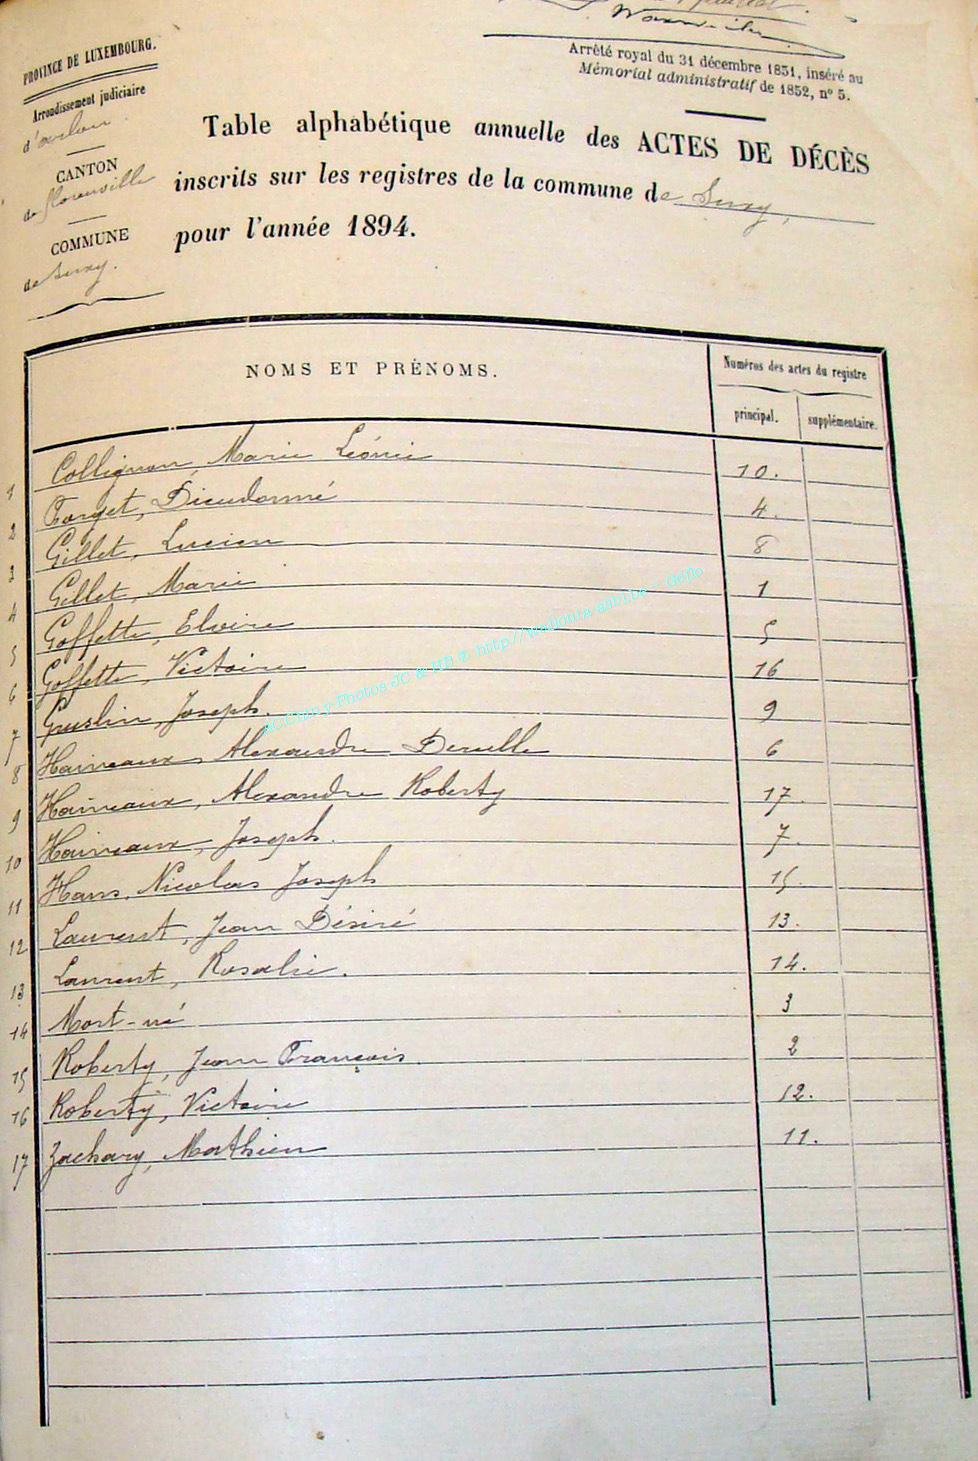 PROVINCE DE LUXEMBOURG.
Arrondissement judiciaire
d'arlon
CANTON
de florenville
COMMUNE
de Suxy.
Arrêté royal du 31 décembre 1851, inséré au
Mémorial administratif de 1852, n° 5.
Table alphabétique annuelle des ACTES DE DÉCÈS
inscrits sur les registres de la commune de Suxy,
pour l'année 1894.
NOMS ET PRÉNOMS.
Numéros des actes du registre
principal. supplémentaire.
1 Collignon, Marie Léonie 10.
2 Forget, Dieudonné 4.
3 Gillet, Lucien 8
4 Gillet, Marie 1
5 Goffette, Elvire 5
6 Goffette, Victoire 16
7 Guslin, Joseph. 9
8 Haineaux, Alexandre 6
9 Haineaux, Alexandre Roberty 17.
10 Haineaux, Joseph. 7.
11 Hans, Nicolas Joseph 15.
12 Laurent, Jean Désiré 13.
13 Laurent, Rosalie. 14.
14 Mort-né 3
15 Roberty, Jean François 2
16 Roberty, Victoire 12.
17 Zachary, Mathieu 11.
Photos JC & HB @ http://Wallonia.asbl.be - Géflo